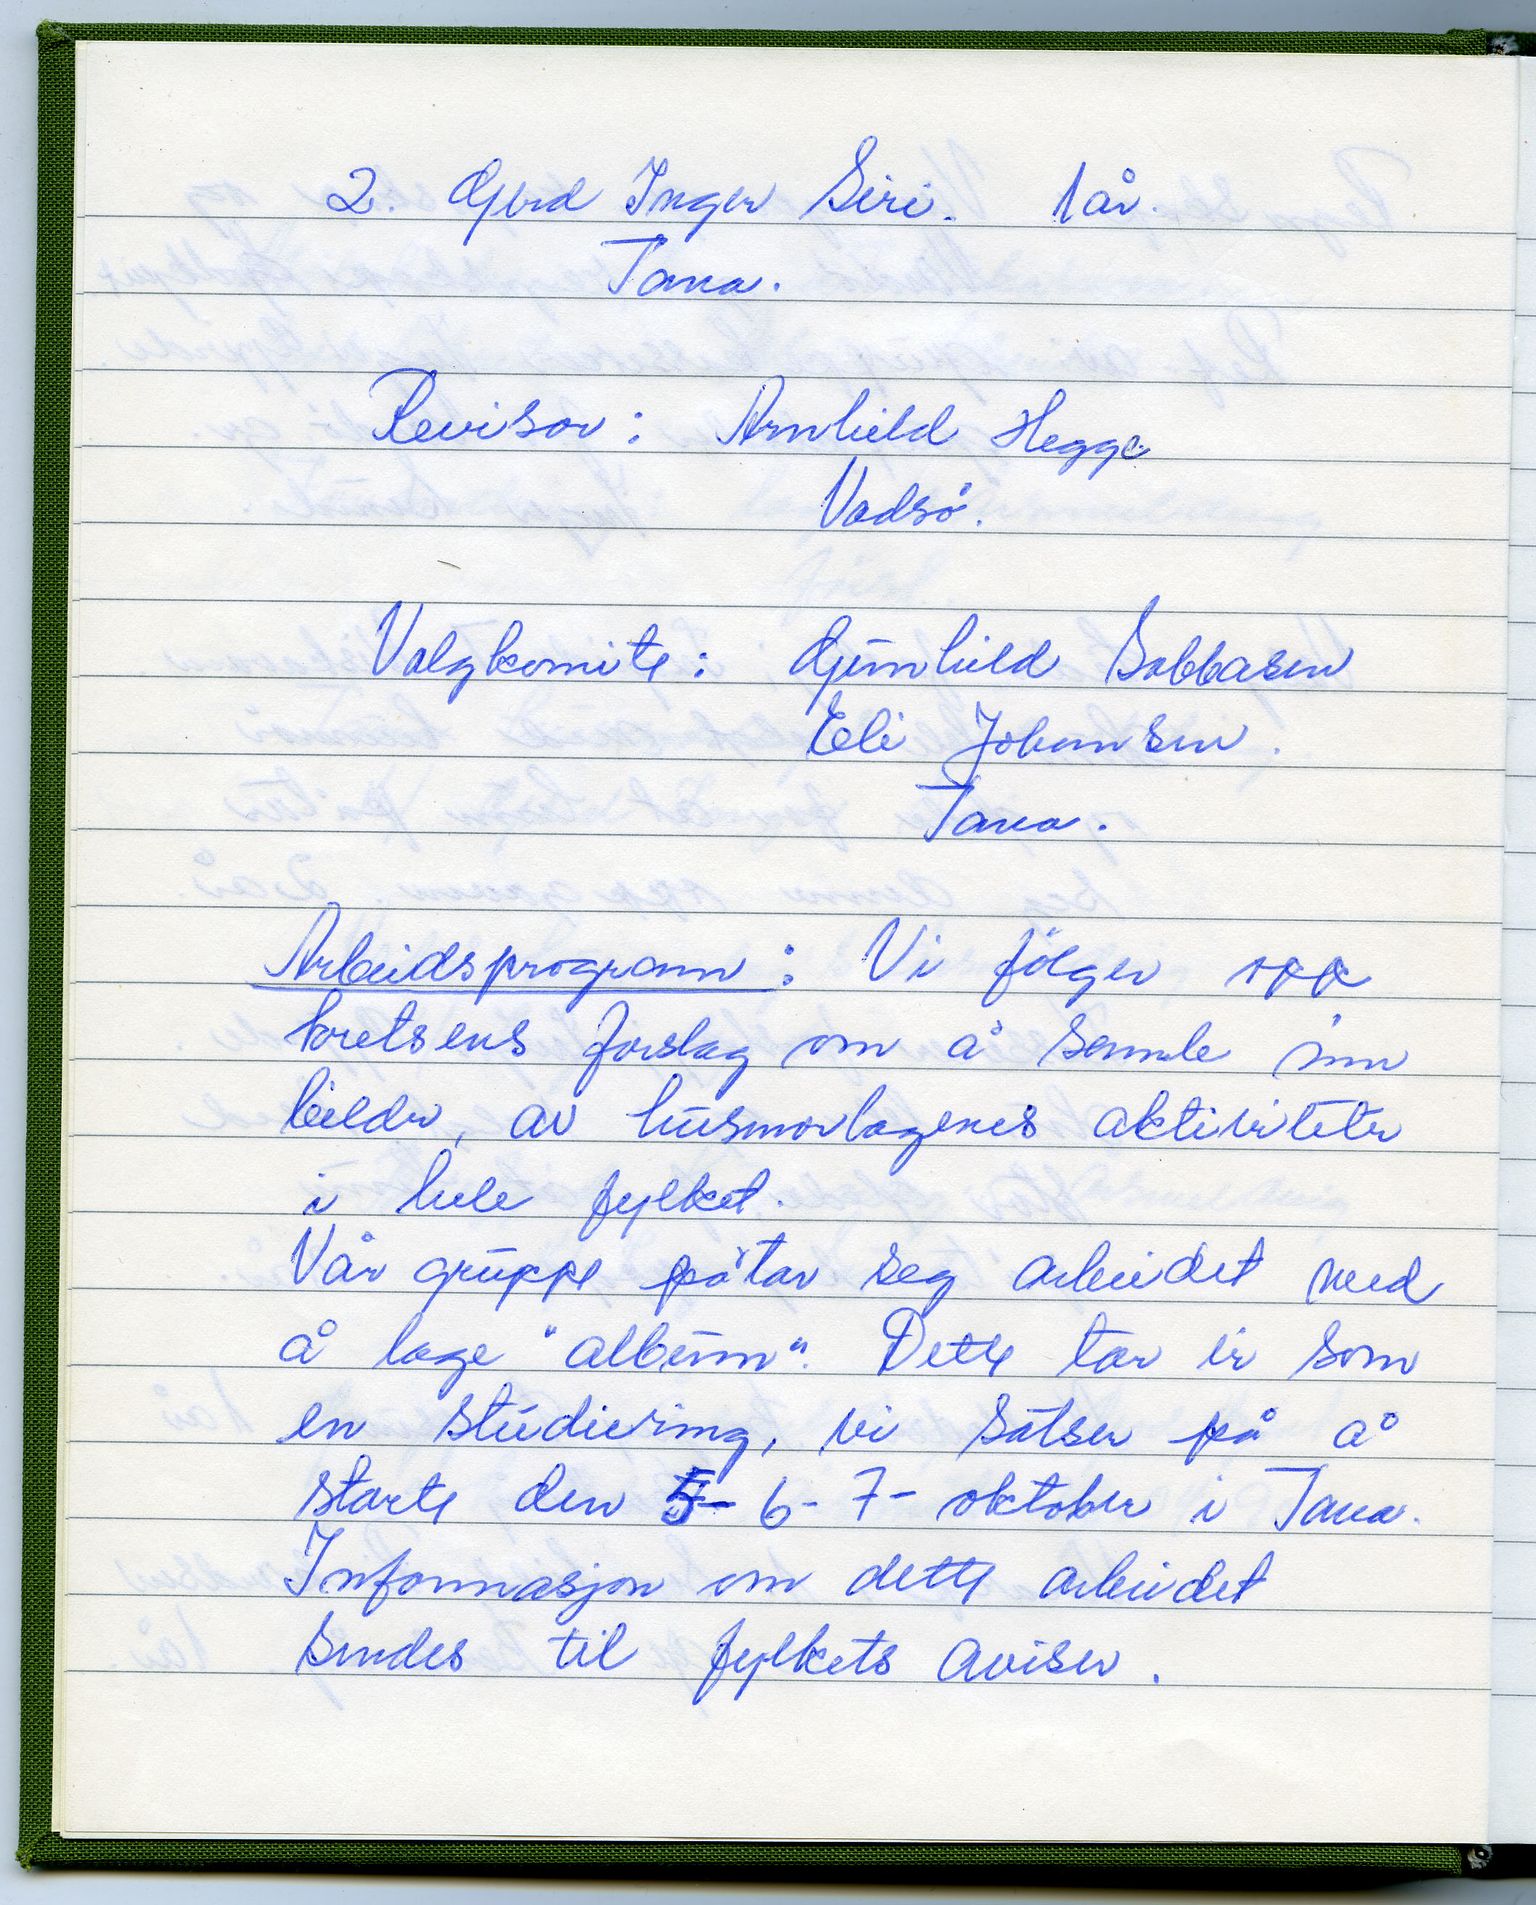 2. Gerd Inger Siri. 1 år.
Tana.
Revisor: Arnhild Hegge
Vadsø.
Valgkomite: Gunhild Sabbasen
Eli Johansen.
Tana.
Arbeidsprogram: Vi følger opp
kretsens forslag om å samle inn
bilder, av husmorlagenes aktiviteter
i hele fylket.
Vår gruppe påtar seg arbeidet med
å lage "album". Dette tar vi som
en studiering, vi satser på å
starte den 5- 6- 7- oktober i Tana.
Informasjon om dette arbeidet
sendes til fylkets aviser.